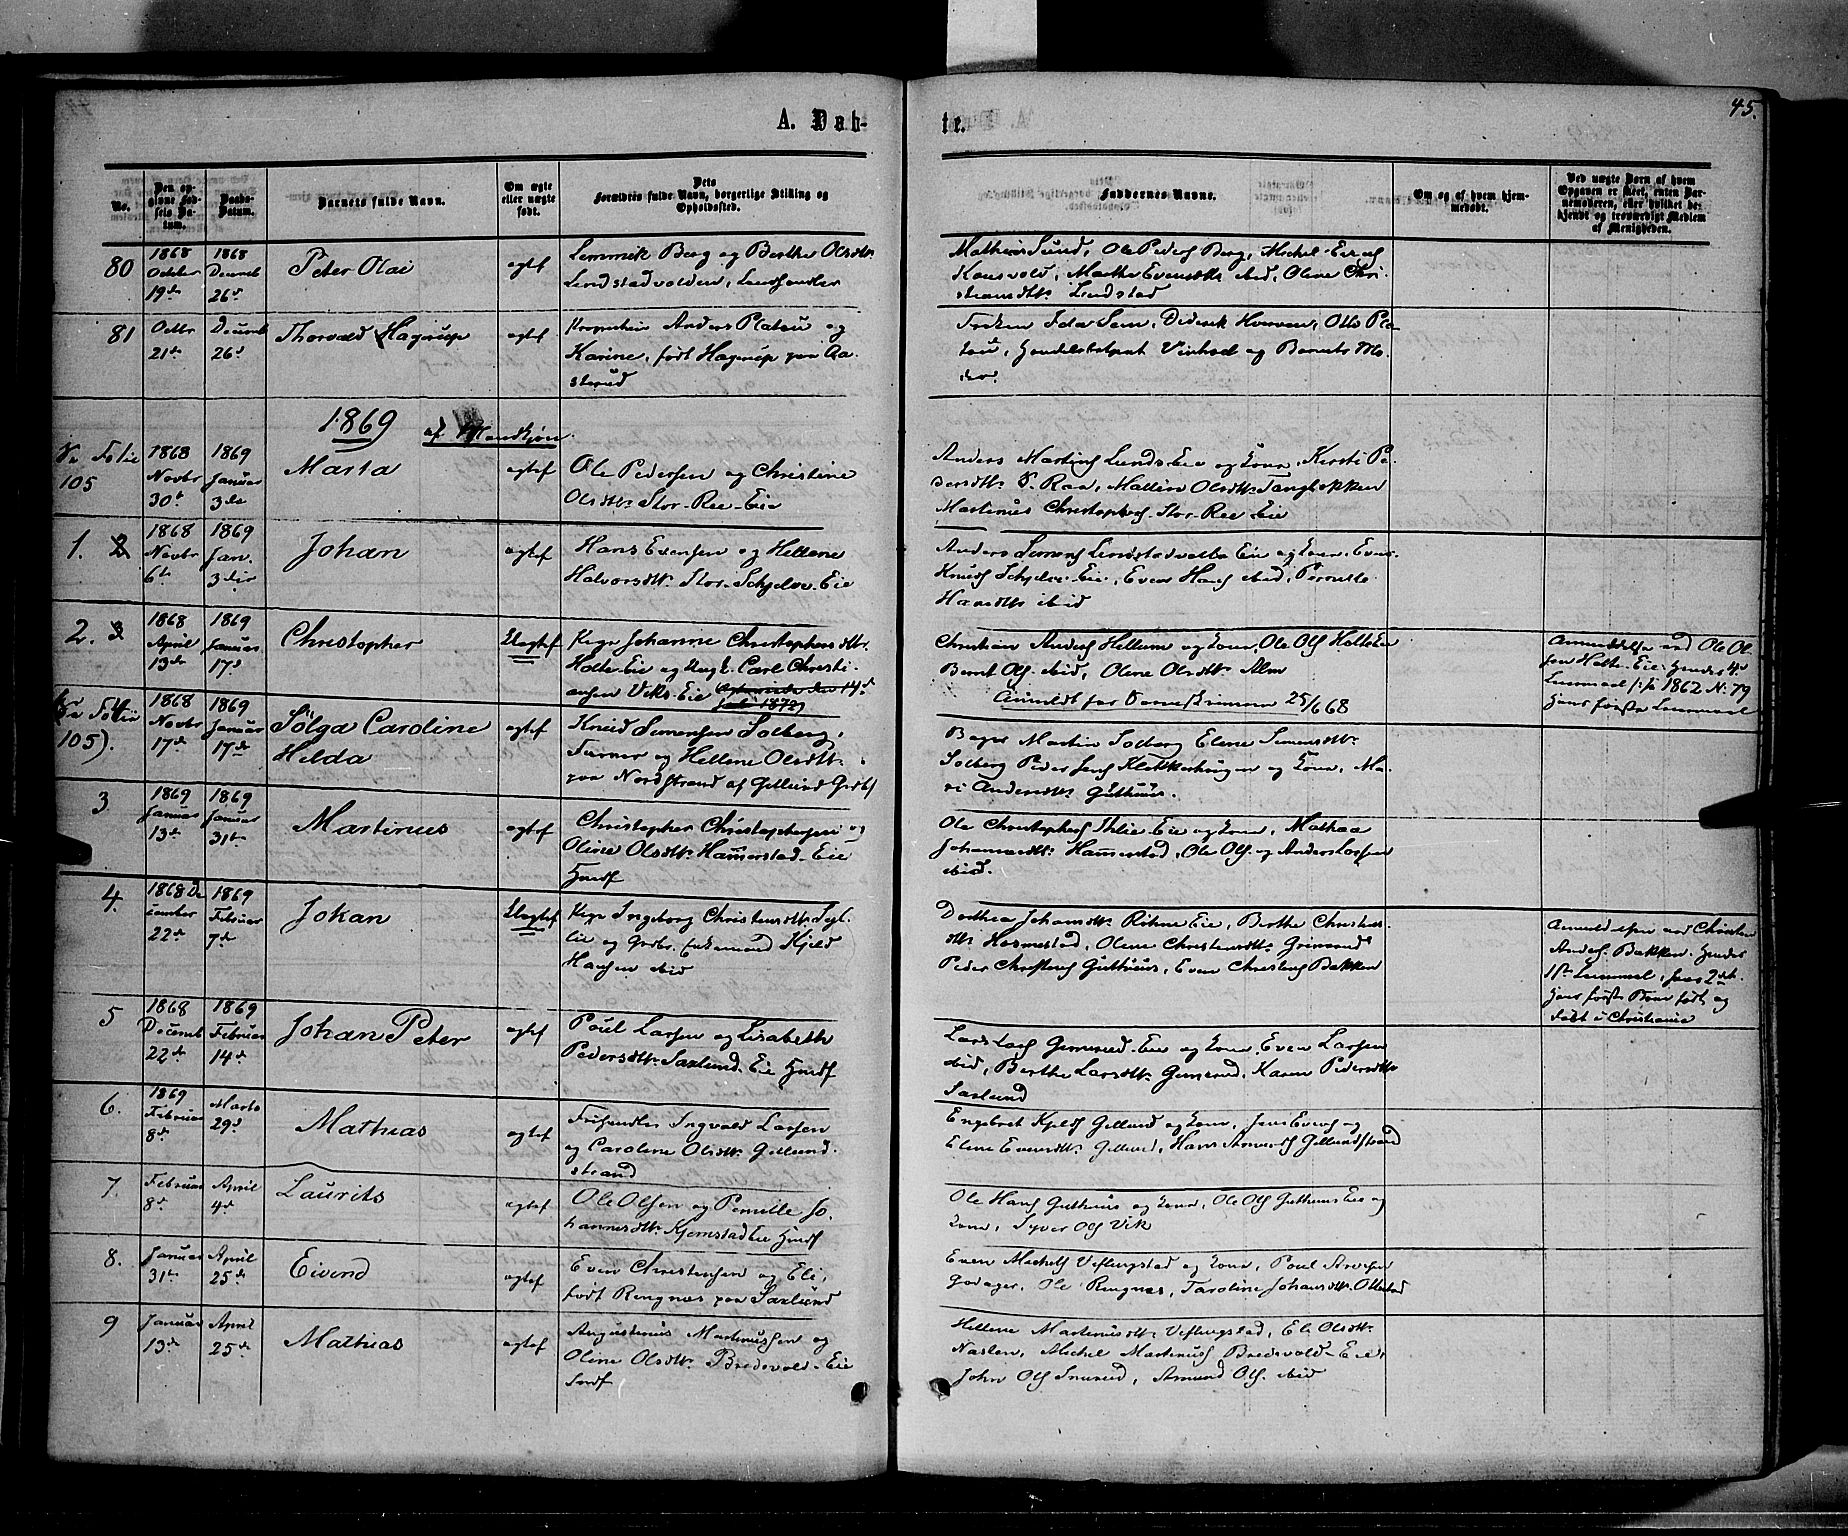 A. Døb-
te.
45.
No.
Den op-
givne Fød-
sels Da-
tum.
Daabs-
Datum.
Barnets fulde Navn.
Om ægte
eller uægte
født.
Dets
Forældres fulde Navn, borgerlige Stilling og
Opholdssted.
Faddernes Navne.
Om og af hvem hjem-
medøbt.
Ved uægte Børn af hvem
Opgaven er skeet, enten Bar-
nemoderen, eller hvilket be-
kjendt og troværdigt Medlem
af Menigheden.
80
1868
October
19de
1868
Decemb
26d
Peter Olai
ægtef
Lemmik Berg og Berthe Olsdtr
Lindstadvolden, Landhandler
Mathias Lund, Ole Peders Berg, Michel
Marthe Evensdtr ibid, Oline Chri-
stiansdtr Lindstad
81
Octbr
21de
Decemb
26d
Thorvald Hagrup
ægtef
Anders Platou og
Karine, født Hagrup paa Aa-
sterud
Frøken Ida Sem, Diderik Otto Pla-
tou, og Barnets Mo-
der.
1869
af Mandkjøn
Se Folie
105
1868
Novbr
30t
1869
Januar
3die
Marta
ægtef
Ole Pedersen og Christine
Olsdtr Stor-Ree-Eie
Anders Martins Lunds Eie og Kone, Kirsti Pe-
dersdtr Raa, Mallene Olsdtr Tangbekken
Martinus Christophers Stor-Ree Eie
1. 2
1868
Novbr
6te
1869
Jan.
3die
Johan
ægtef
Hans Evensen og Hellene
Halvorsdtr Stor-Schjelve-Eie
Anders Simens Lindstadvolds Eie og Kone, Even
Knuds Schjelve Eie, Even Hans ibid, Pernille
Hansdtr ibid
2. 3
1868
April
13de
1869
Januar
17d
Christopher
Uægtef
Pige Johanne Christophersdtr
Holte-Eie og Ungk. Carl Christi-
ansen Viks-Eie
Juli 1879
Christian Anders Hellum og Kone, Ole Ols Holte Eie
Bernt Ols ibid, Oline Olsdtr Alm
Anmeldt for 25/6 68
Anmeldelse ved Ole Ol-
sen Holte-Eie. Hendes 4de
Leiermaal f. f. 1862 N. 79
Hans første Leiermaal
Se Folie
105).
1868
Novbr
17de
1869
Januar
17de
Sølga Caroline
Helda
ægtef
Knud Simensen Solberg,
og Hellene Olsdtr
paa Nordstrand af Gillund Grdbr
Bager Martin Solberg Elene Simensdtr
Solberg Peder Jens Klokkerhaugen og Kone, Ma-
ri Andersdtr Guthuus.
3
1869
Januar
13de
1869
Januar
31te
Martinus
ægtef
Christopher Christophersen og
Oline Olsdtr Hammerstad-Eie
Huusf
Ole Christophers Ihlie Eie og Kone, Mathea
Johannesdtr Hammerstad, Ole Ols. og Anders Larsen
ibid.
4.
1868 De
cember
22de
1869
Februar
7de
Johan
Uægtef
Pige Ingeborg Christensdtr
Eie og Grdbr. Enkemand Kjeld
Hansen ibid
Dorthea Johansdtr Rihne Eie, Berthe Christens
dtr Hammestad, Olene Christensdtr Grimerud
Peder Christens Guthuus, Even Christens Bakken
Anmeldelsen ved Christen
Anders. Bakken. Hendes
1ste Leiermaal, hans 2det.
Hans første Barn født og
døbt i Christiania
5
1868
Decemb
22de
1869
Februar
14de
Johan Peter
ægtef
Poul Larsen og Lisabeth
Pedersdtr Saxlund Eie Huusf
Lars Lars Gimsrud-Eie og Kone, Even Larsen
ibid, Berthe Larsdtr Gimsrud, Karen Pedersdtr
Saxlund
6.
1869
Februar
8de
Marts
29d
Mathias
ægtef
Friehandler Ingvald Larsen
og Caroline Olsdtr Gillund-
strand
Engebret Kjelds Gillund og Kone, Jens Evens og
Elene Evensdtr Gillund, Hans Amunds Gillundstrand
7.
Februar
8de
April
4de
Laurits
ægtef
Ole Olsen og Pernille Jo-
hannesdtr Kjemstad Eie Huusf
Ole Hans Guthuus og Kone, Ole Ols Guthuus Eie og
Kone, Syver Ols Vik
8.
Januar
31te
April
25de
Eivind
ægtef
Even Christensen og Eli,
født Ringnes paa Saxlund
Even Michels Veflingstad og Kone, Poul Arvesen
Godager, Ole Ringnes, Karoline Johansdtr Ottestad
9
Januar
13de
April
25de
Mathias
ægtef
Augustinus Martinussen og
Oline Olsdtr Bredvold-Eie
Hellene Martinusdtr Veflingstad, Eli Olsdtr
Naslen, Michel Martinus Bredvold-Eie,
John Ols Snurud, Amund Ols. ibid